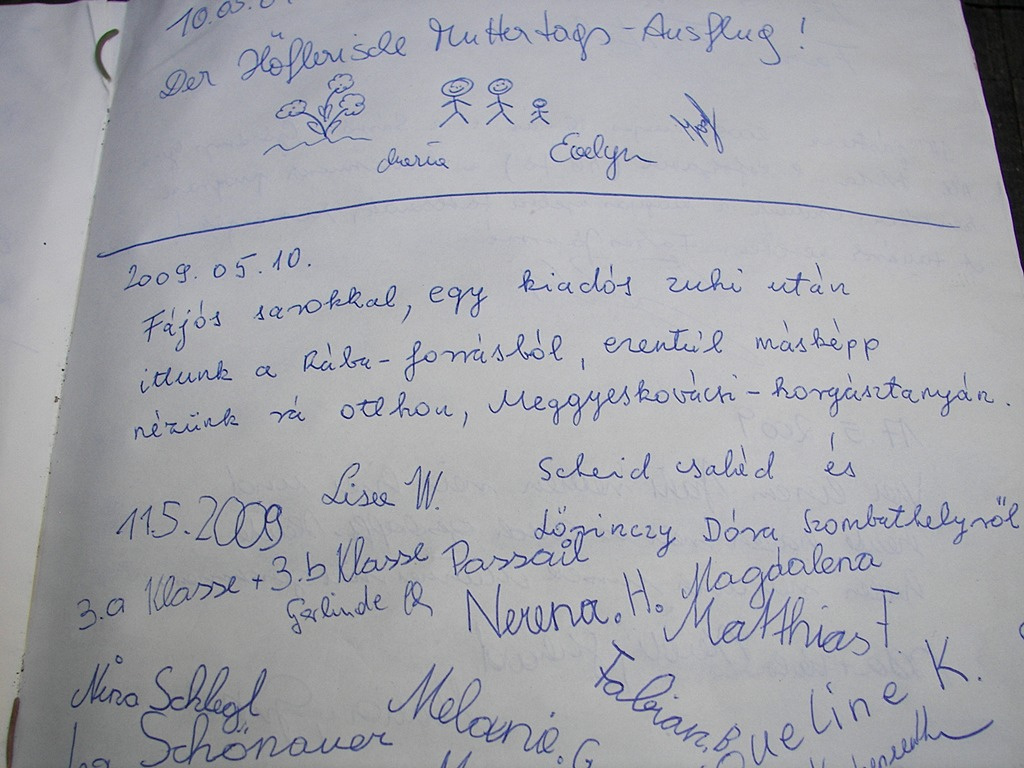 10.05.
Der Höflerische Muttertags-Ausflug!
Maria Evelyn
2009.05.10.
Fájós sarokkal, egy kiadós zuhi után
ittunk a Rába-forrásból, ezentúl másképp
nézünk rá otthon, Meggyeskovácsi-horgásztanyán.
Scheid család és
Lőrinczy Dóra Szombathelyről
11.5.2009 Lisa W.
3.a Klasse + 3.b Klasse Passail
Gerlinde Nerena.H. Magdalena
Matthias F
Nina Schlegl Melanie.G Fabian.B
Schönauer queline K.